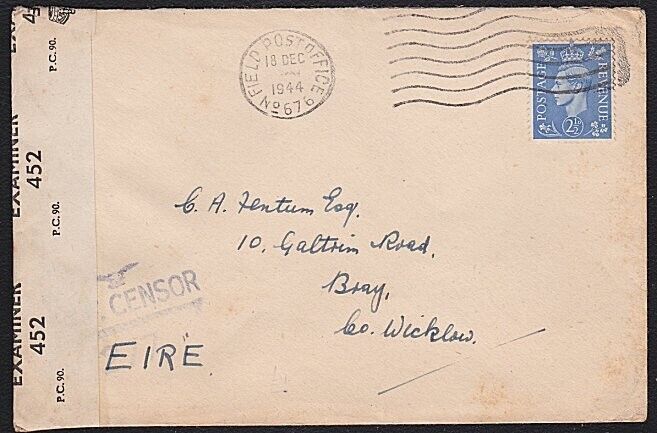 EXAMINER
452
P.C. 90.
EXAMINER
452
P.C. 90.
P.C. 90.
FIELD POST OFFICE
18 DEC
1944
No 676
POSTAGE
REVENUE
2½D
C. A. Fentum Esq.
10, Galtrim Road,
Bray,
Co. Wicklow.
CENSOR
EIRE.